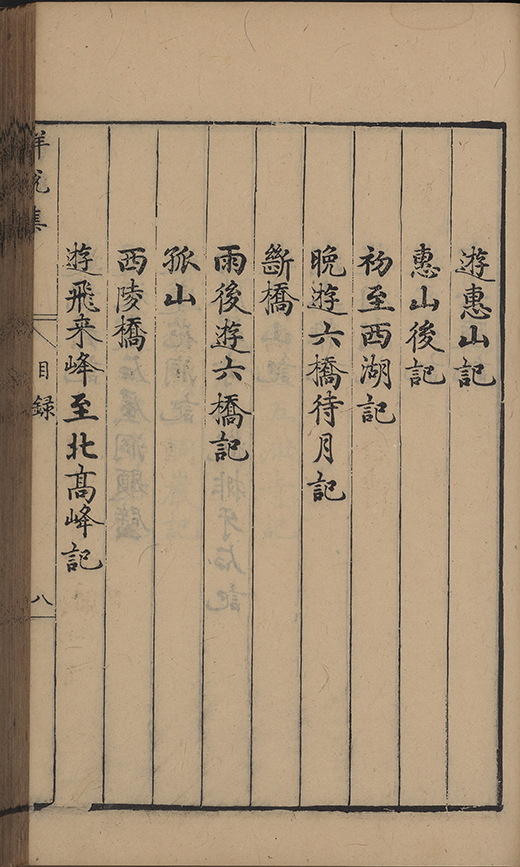 遊惠山記
惠山後記
初至西湖記
晚遊六橋待月記
斷橋
雨後遊六橋記
孤山
西陵橋
遊飛来峰至北高峰記
目録
八